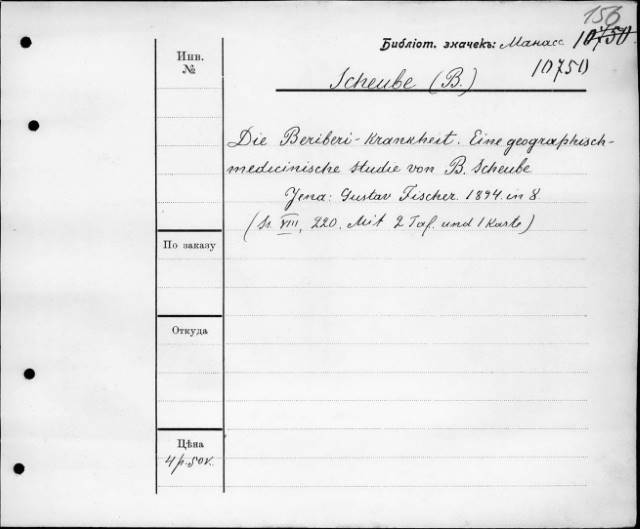 156
Библіот. значекъ: Манасс 10750
10750
Инв.
№
Scheube (B.)
Die Beriberi-Krankheit. Eine geographisch-
medicinische Studie von B. Scheube
Jena: Gustav Fischer. 1894. in 8.
(Sr. VIII, 220. Mit 2 Taf. und 1 Karte)
По заказу
Откуда
Цѣна
4 р. 50 к.